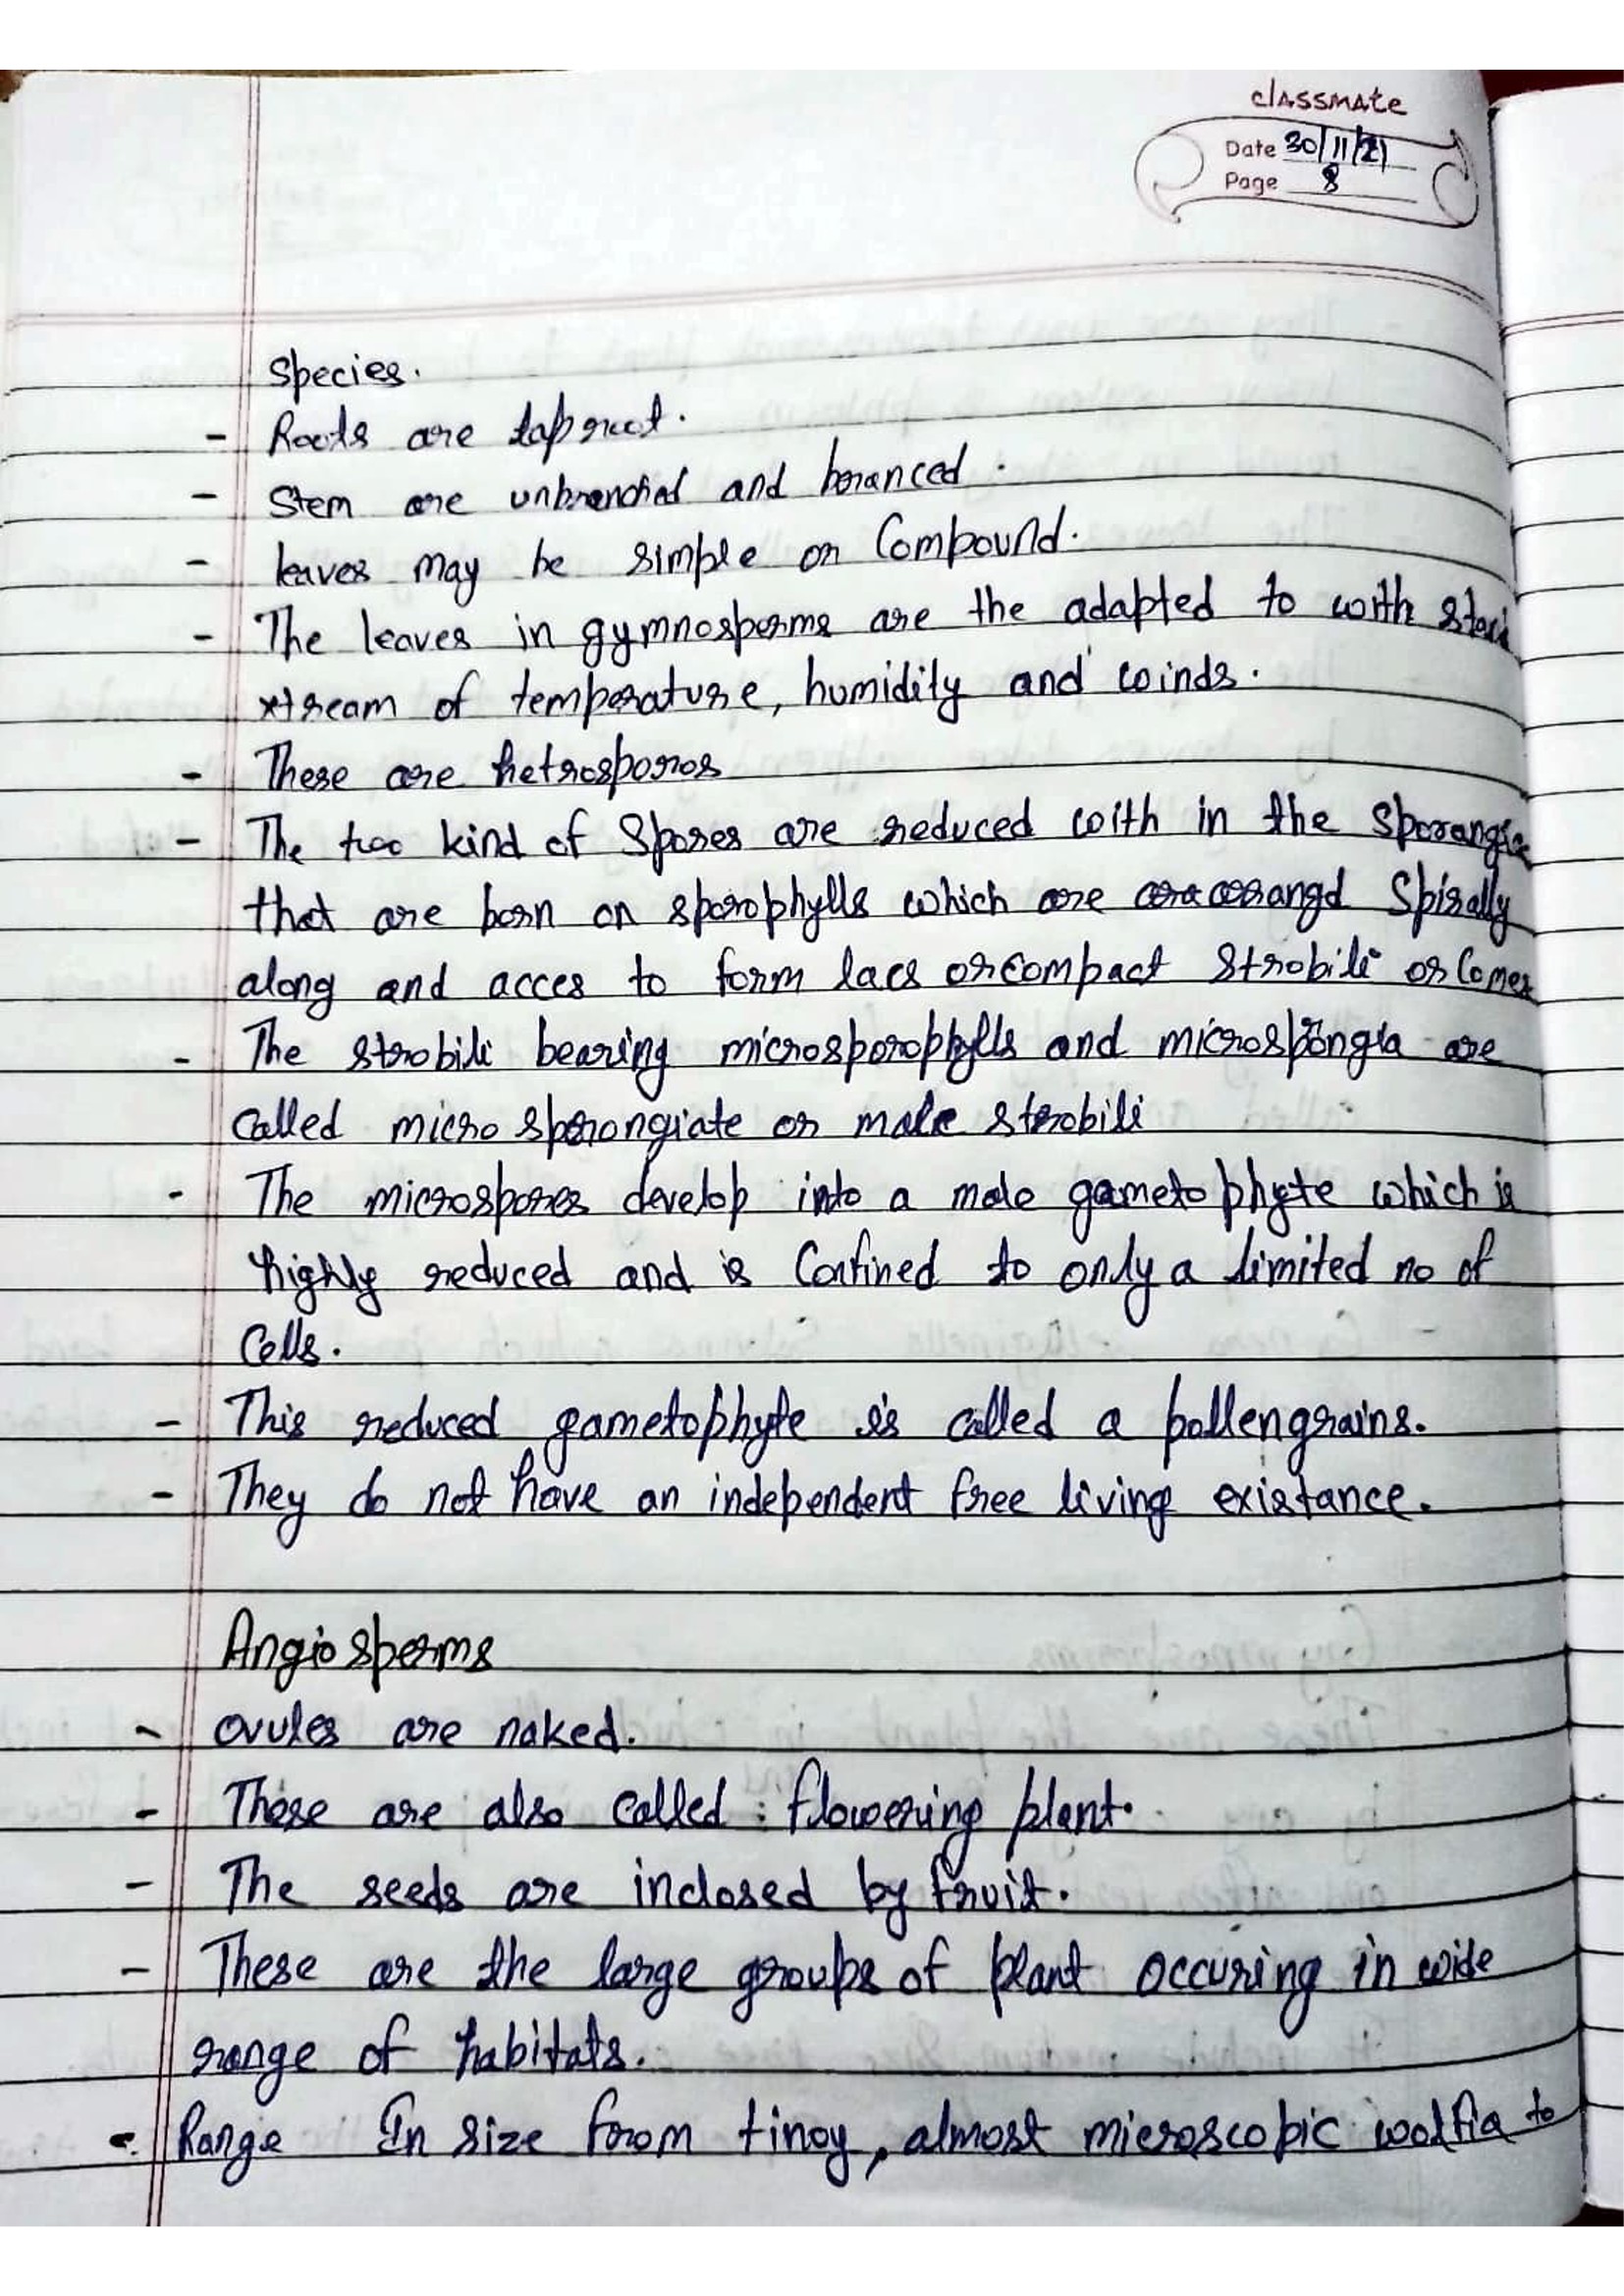 classmate
Date 30/11/21
Page 8
Species.
- Roots are taproot.
- Stem are unbranched and branced.
- leaves may be simple or Compound.
- The leaves in gymnosperms are the adapted to with
xtream of temperature, humidity and winds.
- These are hetrosporos
- The two kind of Spores are reduced with in the Sporangia
that are born on sporophylls which are arrangd Spirally
along and acces to form lacs or compact Strobili or Comes
- The strobili bearing microsporophylls and are
Called micro sporongiate or male strobili
- The microspores develop into a male gametophyte which is
highly reduced and is Confined to only a limited no of
Cells.
- This reduced gametophyte is called a pollengrains.
- They do not have an independent free living existance.
Angiosperms
- ovules are naked.
- These are also Called : flowering plant.
- The seeds are inclosed by fruit.
- These are the large groups of plant occuring in wide
range of habitats.
- Range In size from tinoy, almost microscopic woolfia to